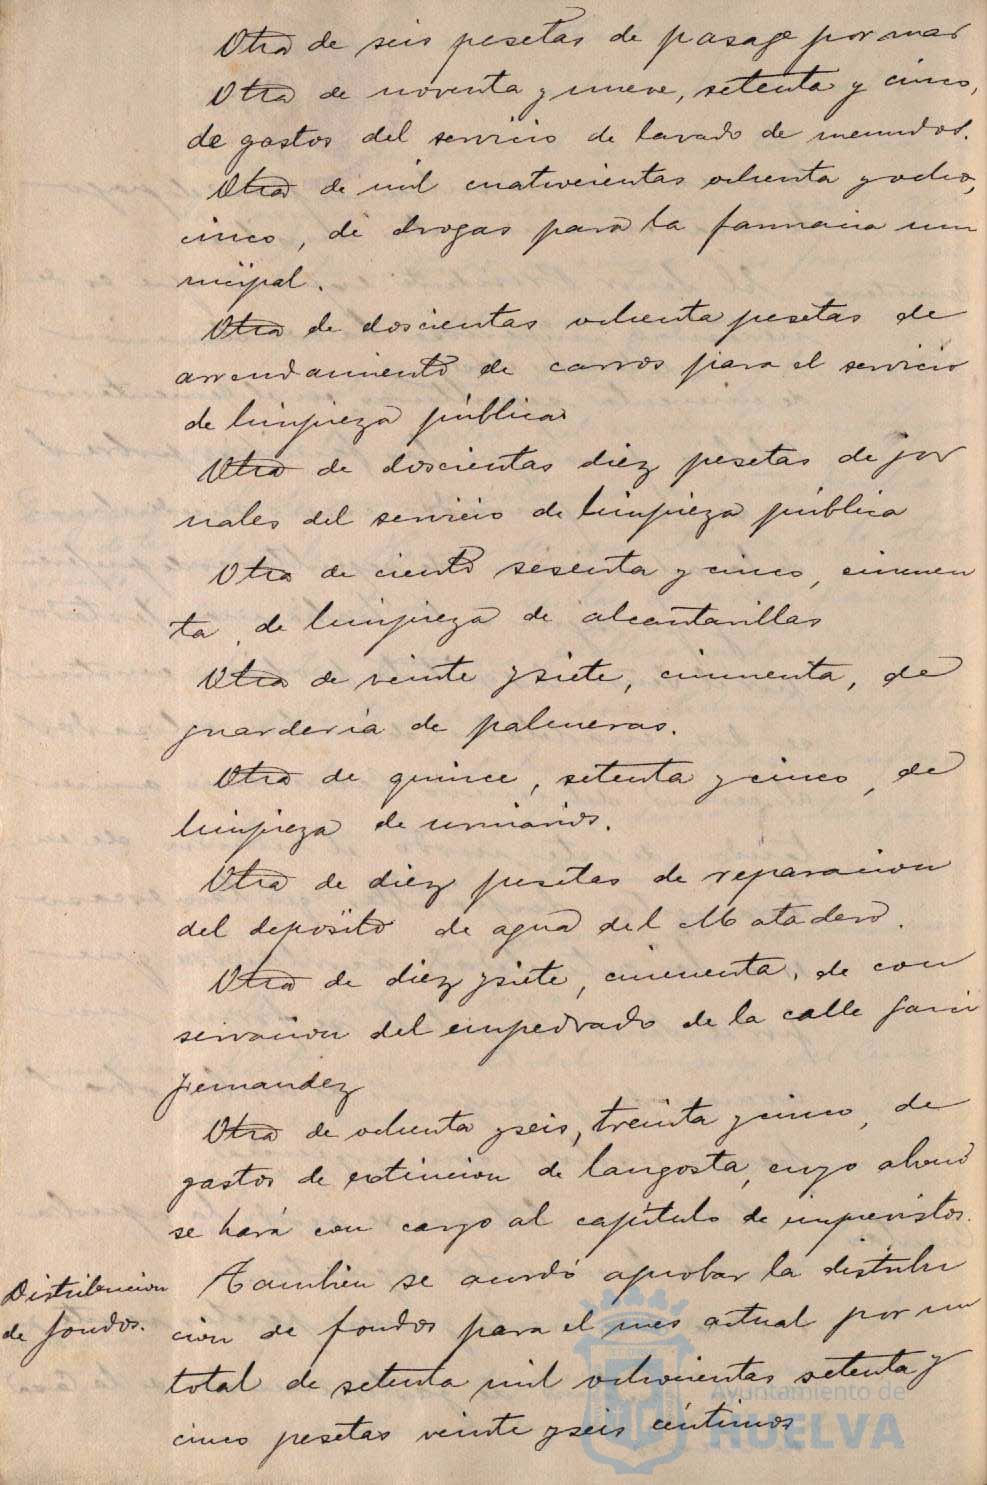 Otra de seis pesetas de pasage por mar
Otra de noventa y nueve, setenta y cinco,
de gastos del servicio de lavado de menudos.
Otra de mil cuatrocientas ochenta y ocho,
cinco, de drogas para la farmacia mu
nicipal.
Otra de doscientas ochenta pesetas de
arrendamiento de carros para el servicio
de limpieza pública
Otra de doscientas diez pesetas de jor
nales del servicio de limpieza pública
Otra de ciento sesenta y cinco, cincuen
ta, de limpieza de alcantarillas
Otra de veinte y siete, cincuenta, de
guarderia de palmeras.
Otra de quince, setenta y cinco, de
limpieza de urinarios.
Otra de diez pesetas de reparacion
del depósito de agua del Matadero.
Otra de diez y siete, cincuenta, de con
servacion del empedrado de la calle
Fernandez
Otra de ochenta y seis, treinta y cinco, de
gastos de extincion de langosta, cuyo abono
se hará con cargo al capítulo de imprevistos.
Distribucion
de fondos.
Tambien se acordó aprobar la distribu
cion de fondos para el mes actual por un
total de setenta mil ochocientas setenta y
cinco pesetas veinte y seis céntimos
Ayuntamiento de
HUELVA